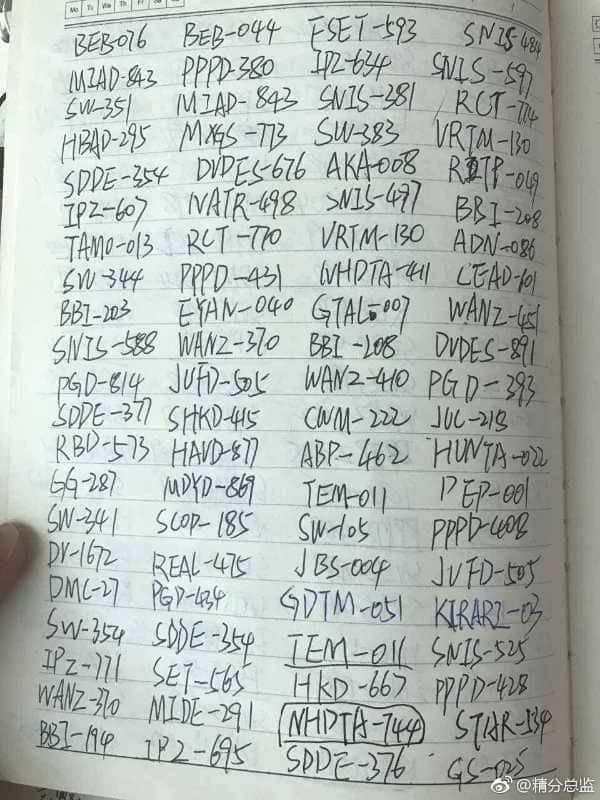 Mo Tu We Th Fr Sa Su
BEB-076 BEB-044 FSET-593 SNIS-484
MIAD-843 PPPD-380 IPZ-634 SNIS-597
SW-351 MIAD-843 SNIS-381 RCT-774
HBAD-295 MXGS-773 SW-383 VRTM-130
SDDE-354 DVDES-676 AKA-008
IPZ-607 NATR-498 SNIS-497 BBI-208
TAMO-013 RCT-770 VRTM-130 ADN-086
SW-344 PPPD-431 NHDTA-411 LEAD-101
BBI-203 EYAN-040 GTAL-007 WANZ-451
SNIS-588 WANZ-370 BBI-208 DVDES-891
PGD-814 JUFD-505 WANZ-410 PGD-393
SDDE-377 SHKD-415 CWM-222 JUC-213
RBD-573 HAVD-877 ABP-462 HUNTA-022
GG-287 MDYD-869 TEM-011 PEP-001
SW-341 SCOP-185 SW-105 PPPD-408
DV-1672 REAL-475 JBS-004 JUFD-505
DMC-27 PGD-434 GDTM-051 KIRARI-03
SW-354 SDDE-354 TEM-011 SNIS-525
IPZ-771 SET-565 HKD-667 PPPD-428
WANZ-370 MIDE-291 NHDTA-744 STAR-534
BBI-194 IPZ-695 SDDE-376 GS-025
@精分总监